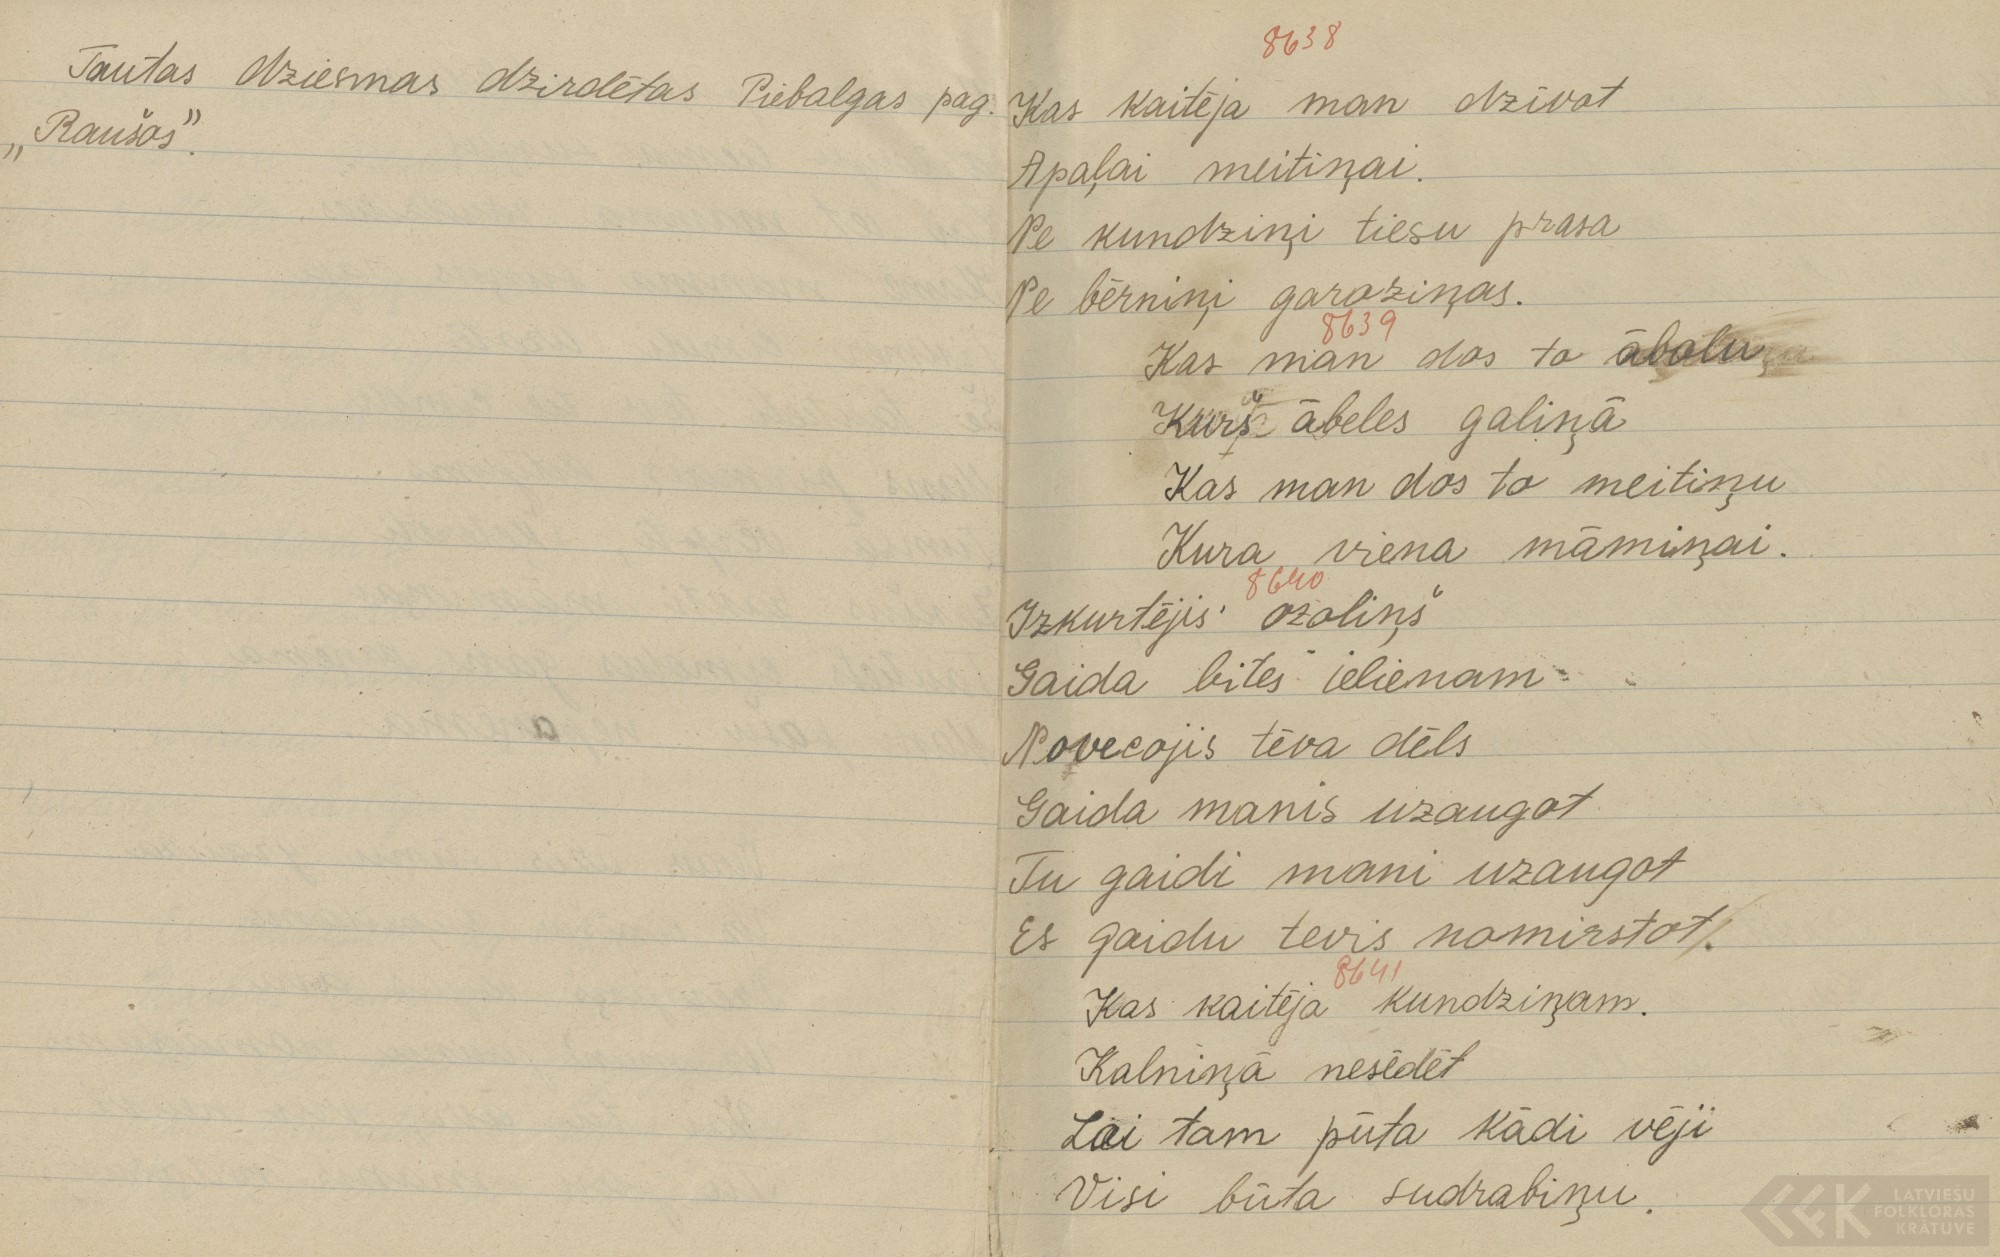 Tautas dziesmas dzirdētas Piebalgas pag.
„Raušos".
8638
Kas kaitēja man dzīvot
Apaļai meitiņai.
Ne kundziņi tiesu prasa
Ne bērniņi garoziņas.
8639
Kas man dos to ābolu
Kurš ābeles galiņā
Kas man dos to meitiņu
Kura viena māmiņai.
8640
Izkurtējis ozoliņš
Gaida bites ielienam
Novecojis tēva dēls
Gaida manis uzaugot
Tu gaidi mani uzaugot
Es gaidu tevis nomirstot.
8641
Kas kaitēja kundziņam.
Kalniņā nesēdēt
Lai tam pūta kādi vēji
Visi būta sudrabiņu.
LATVIEŠU
FOLKLORAS
KRĀTUVE